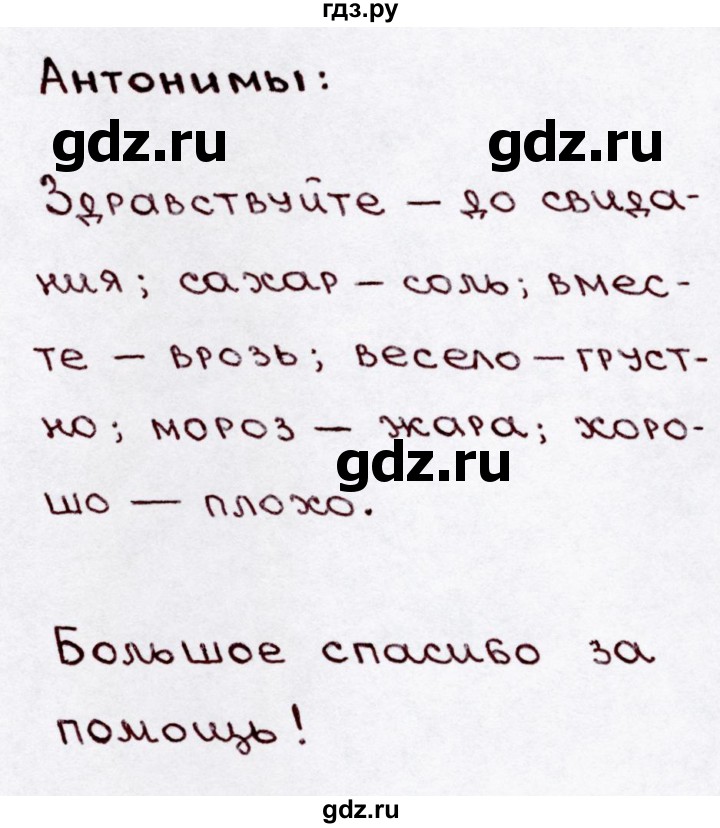 гдз.ру
Антонимы:
gdz.ru gdz.ru
Здравствуйте — до свида-
ния; сахар — соль; вмес-
те — врозь; весело — груст-
но; мороз — жара; хоро-
gdz.ru
шо — плохо.
Большое спасибо за
помощь!
gdz.ru